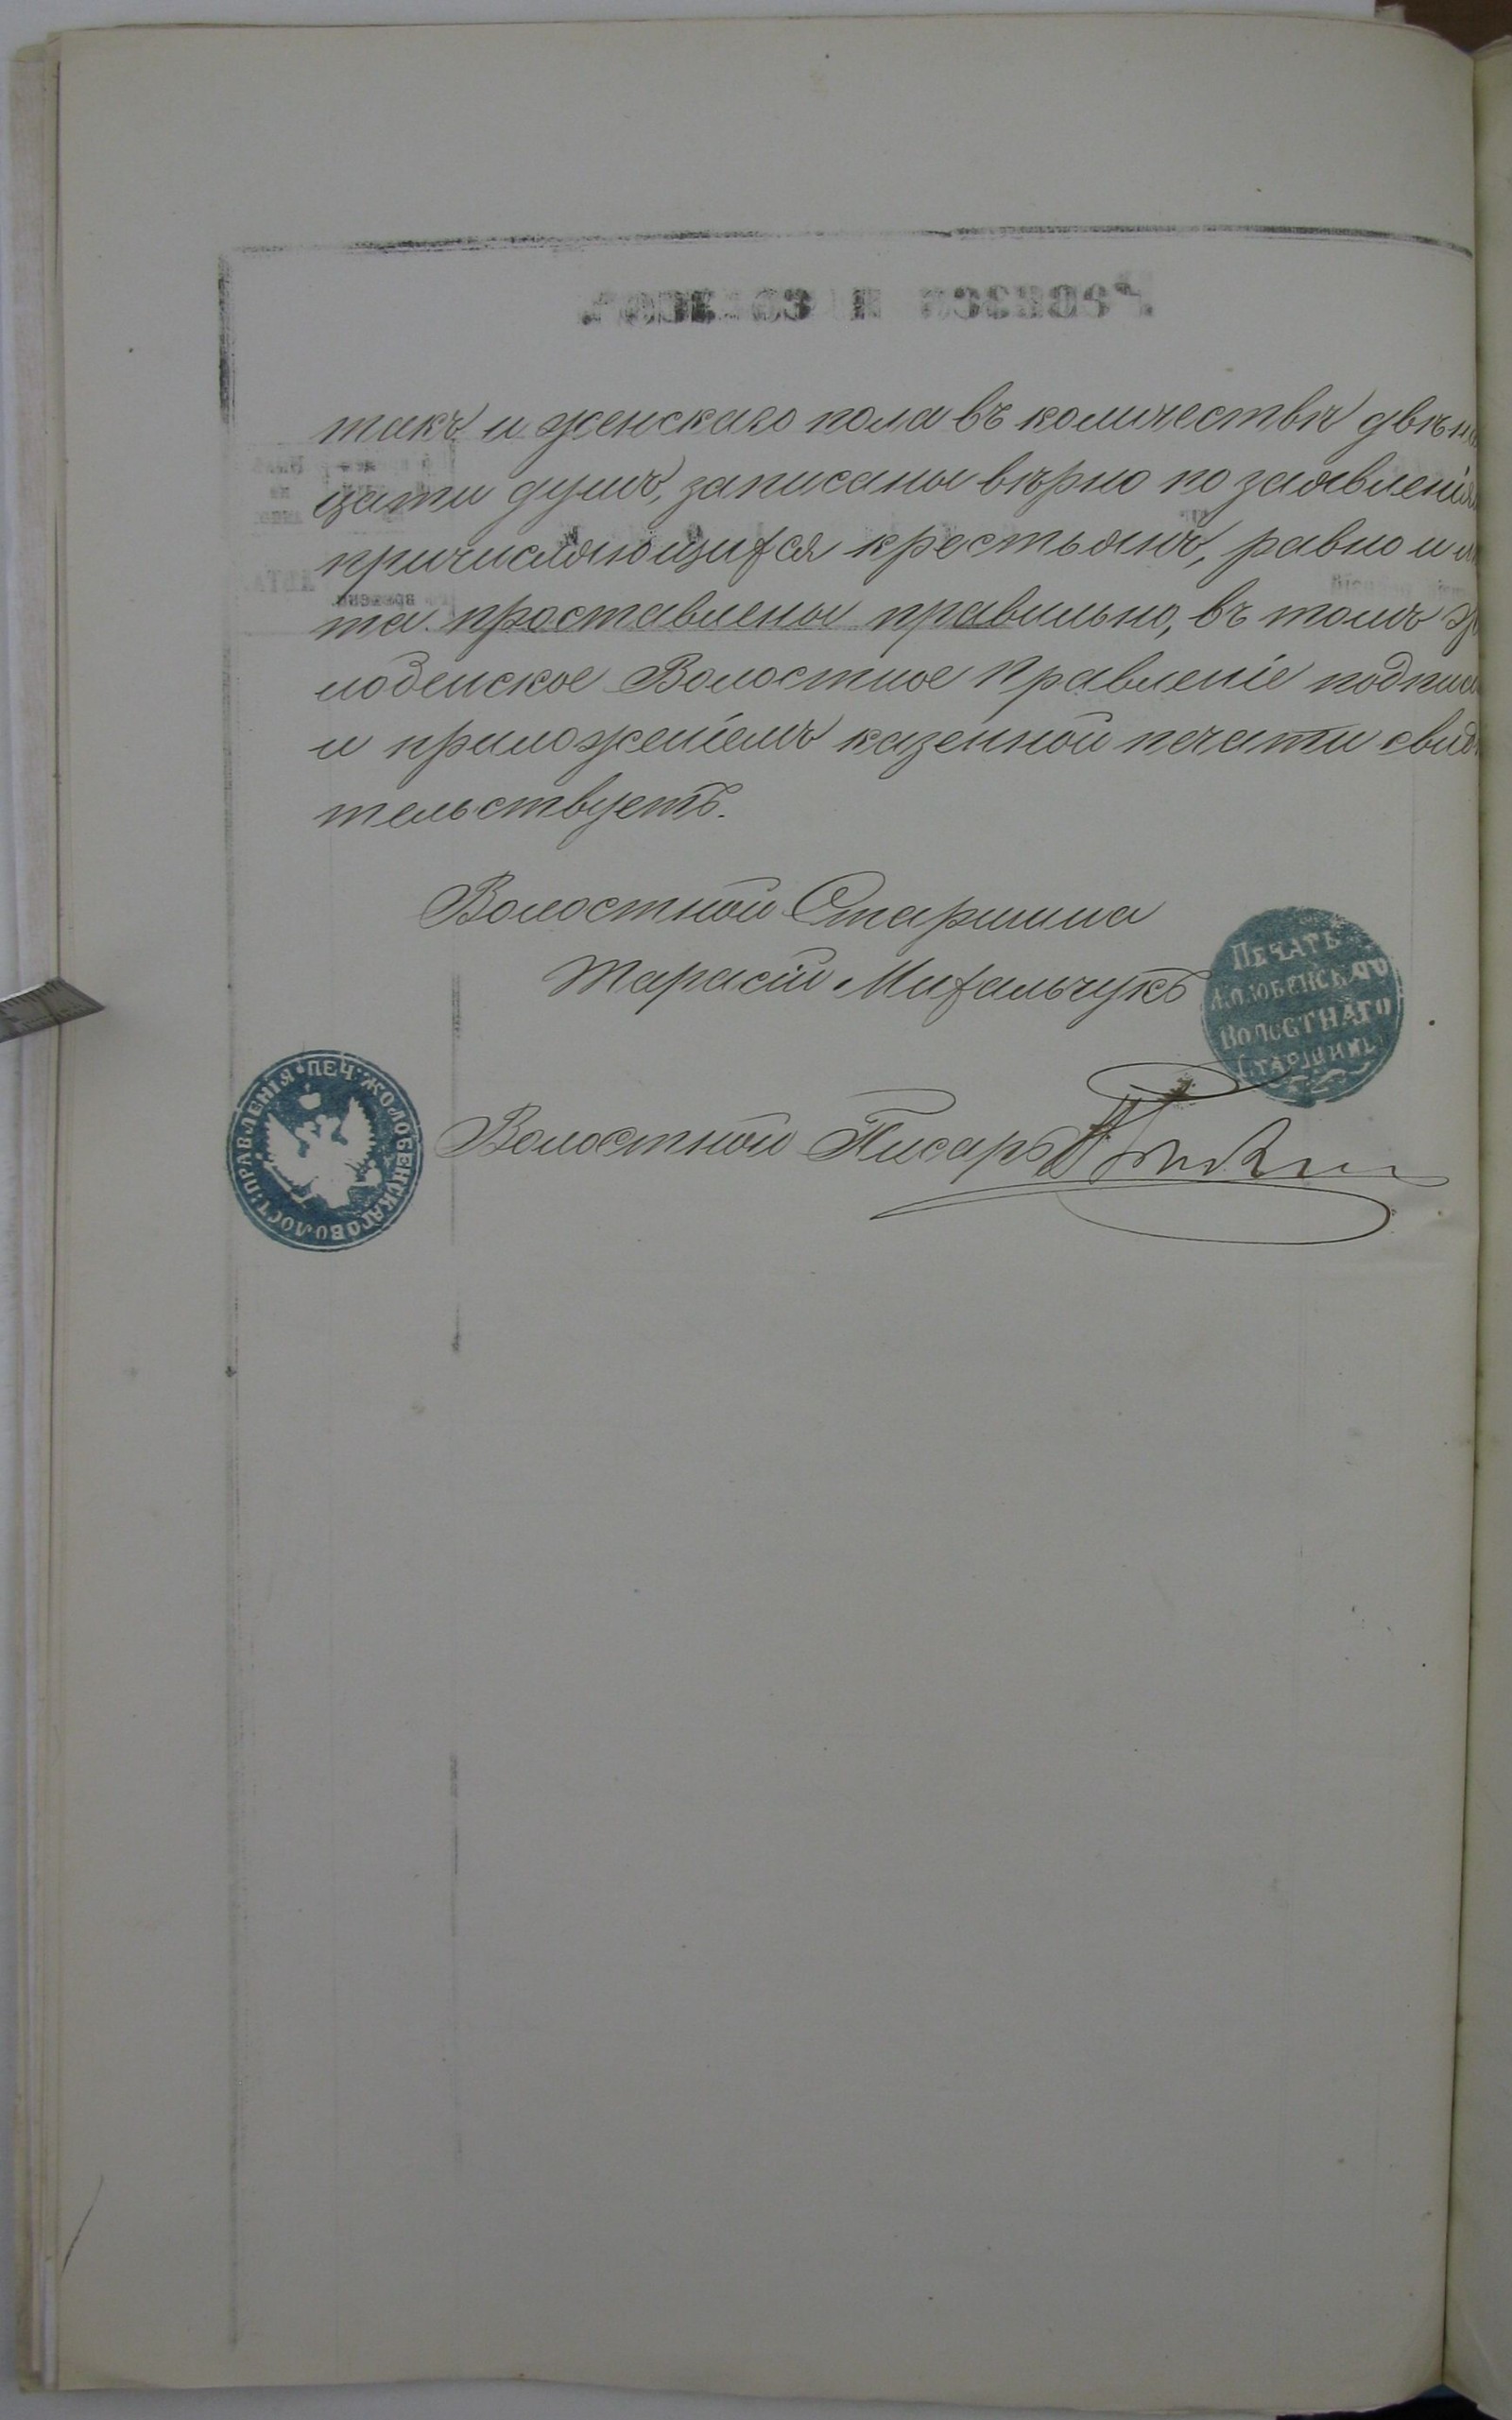 такъ и женскаго пола въ количествѣ двѣна
цати душъ, записаны вѣрно по заявленія
причисляющихся крестьянъ, равно и
та проставлены правильно, въ томъ
лобенское Волостное Правленіе подписа
и приложеніемъ казенной печати свидѣ
тельствуетъ.
Волостной Старшина
Тарасій Михальчукъ
ПЕЧАТЬ
ЖОЛОБЕНСКАГО
ВОЛОСТНАГО
СТАРШИНЫ
ПЕЧ. ЖОЛОБЕНСКАГО ВОЛОСТ. ПРАВЛЕНІЯ
Волостной Писарь